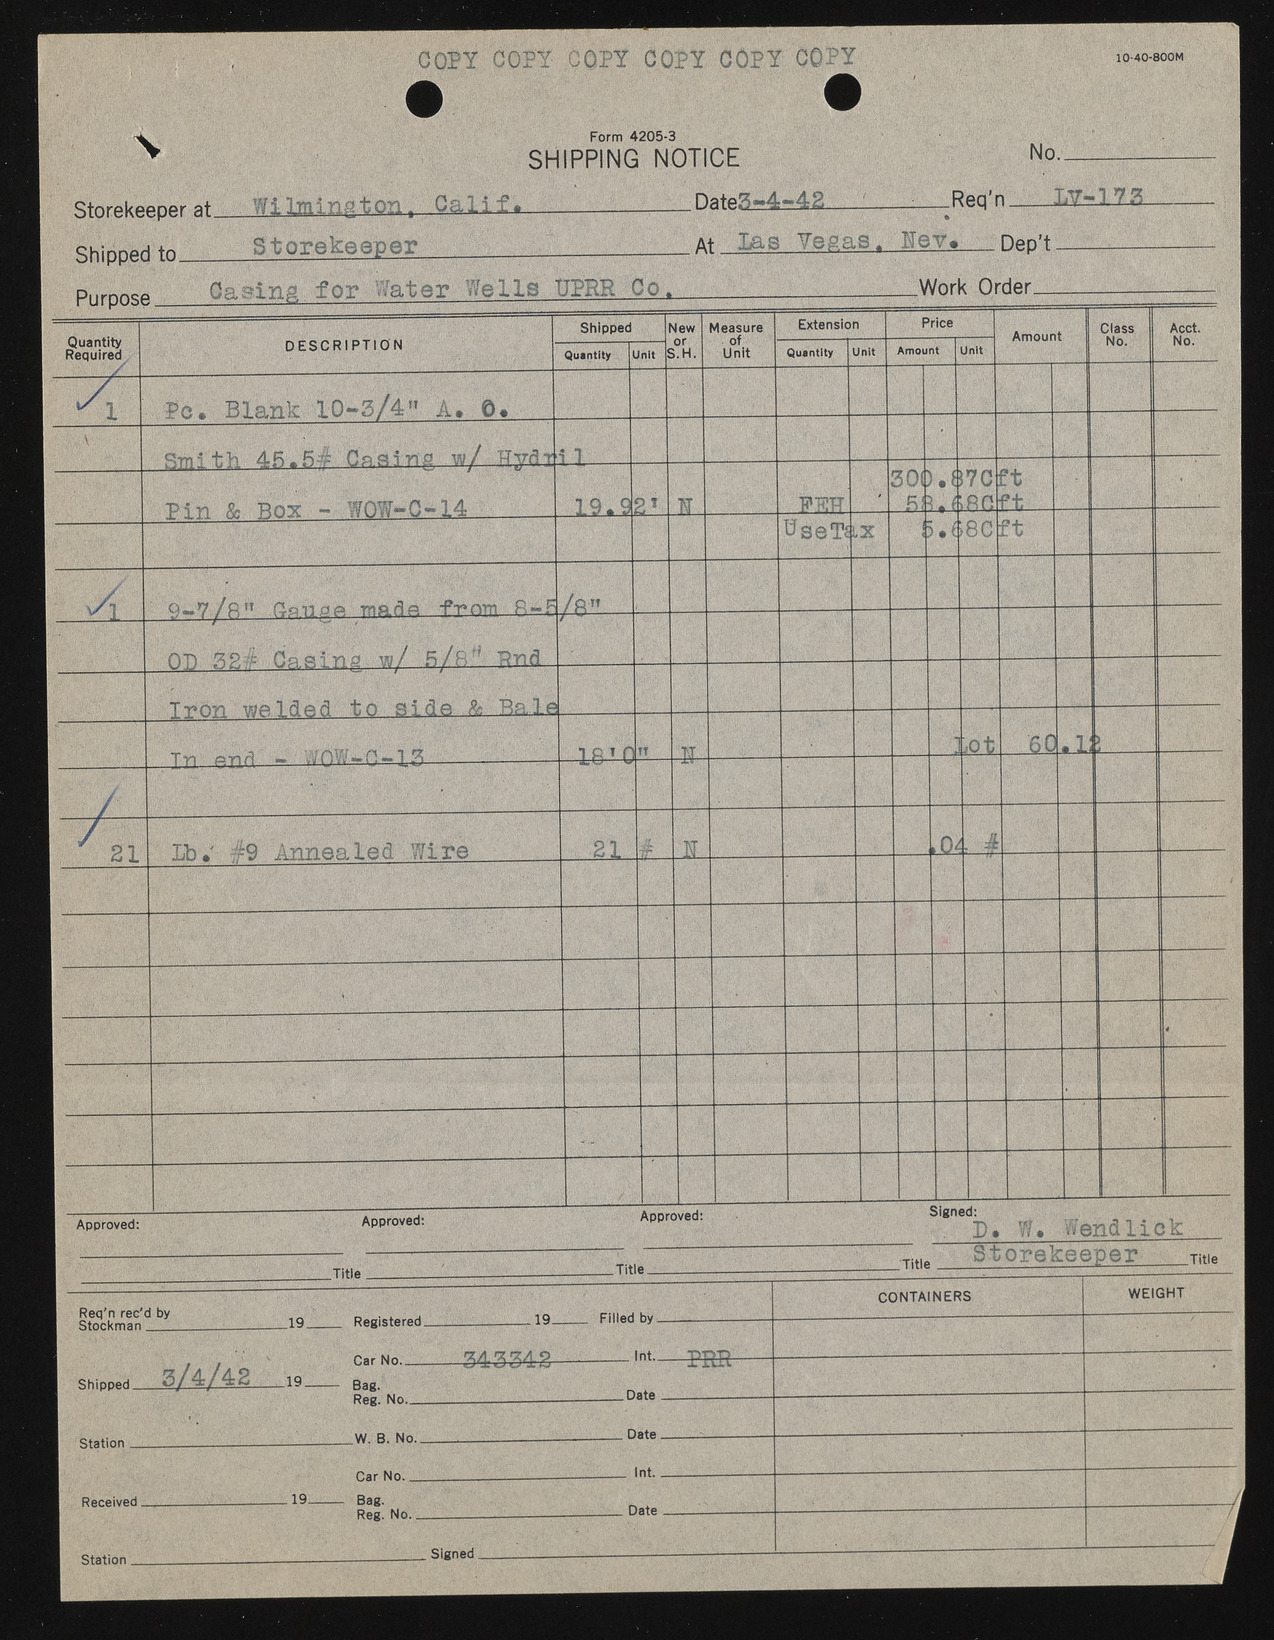 COPY COPY COPY COPY COPY COPY
10-40-800M
Form 4205-3
SHIPPING NOTICE
No.
Storekeeper at Wilmington, Calif. Date 3-4-42 Req'n LV-173
Shipped to Storekeeper At Las Vegas, Nev. Dep't
Purpose Casing for Water Wells UPRR Co. Work Order
Quantity Required DESCRIPTION Shipped Quantity Unit New or S.H. Measure of Unit Extension Quantity Unit Price Amount Unit Amount Class No. Acct. No.
1 Pc. Blank 10-3/4" A. O.
Smith 45.5# Casing w/ Hydril
300.87Cft
Pin & Box - WOW-C-14 19.92' N FEH 58.68Cft
UseTax 5.68Cft
1 9-7/8" Gauge made from 8-5/8"
OD 32# Casing w/ 5/8" Rnd
Iron welded to side & Bale
In end - WOW-C-13 18'0" N Lot 60.12
21 Lb. #9 Annealed Wire 21 # N .04 #
Approved: Approved: Approved: Signed:
D. W. Wendlick
Title Title Title Storekeeper Title
CONTAINERS WEIGHT
Req'n rec'd by
Stockman 19 Registered 19 Filled by
Car No. 343342 Int. PRR
Shipped 3/4/42 19 Bag.
Reg. No. Date
Station W. B. No. Date
Car No. Int.
Received 19 Bag.
Reg. No. Date
Station Signed